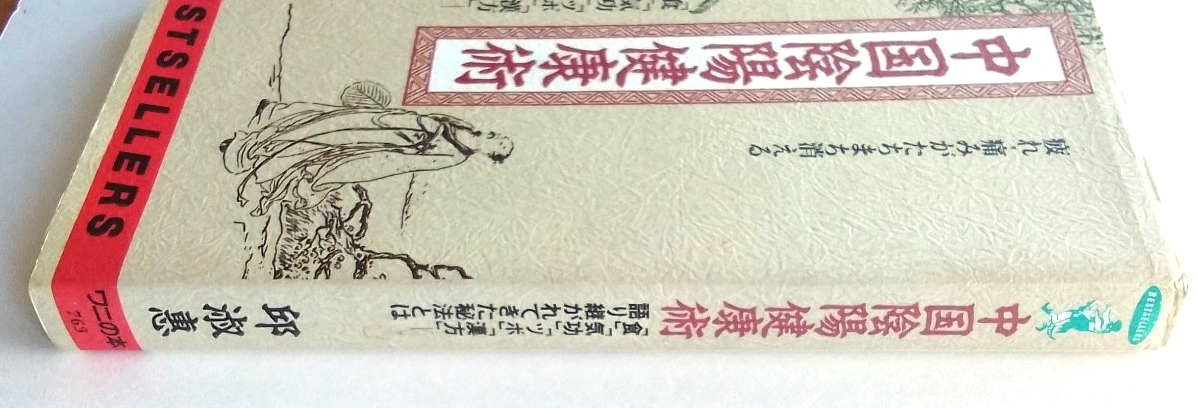 疲れ・痛みがたちまち消える
中国陰陽健康術
「食」「気功」「ツボ」「漢方」—
STSELLERS
BESTSELLERS
中国陰陽健康術
「食」「気功」「ツボ」「漢方」—
語り継がれてきた秘法とは
邱淑惠
ワニの本
763